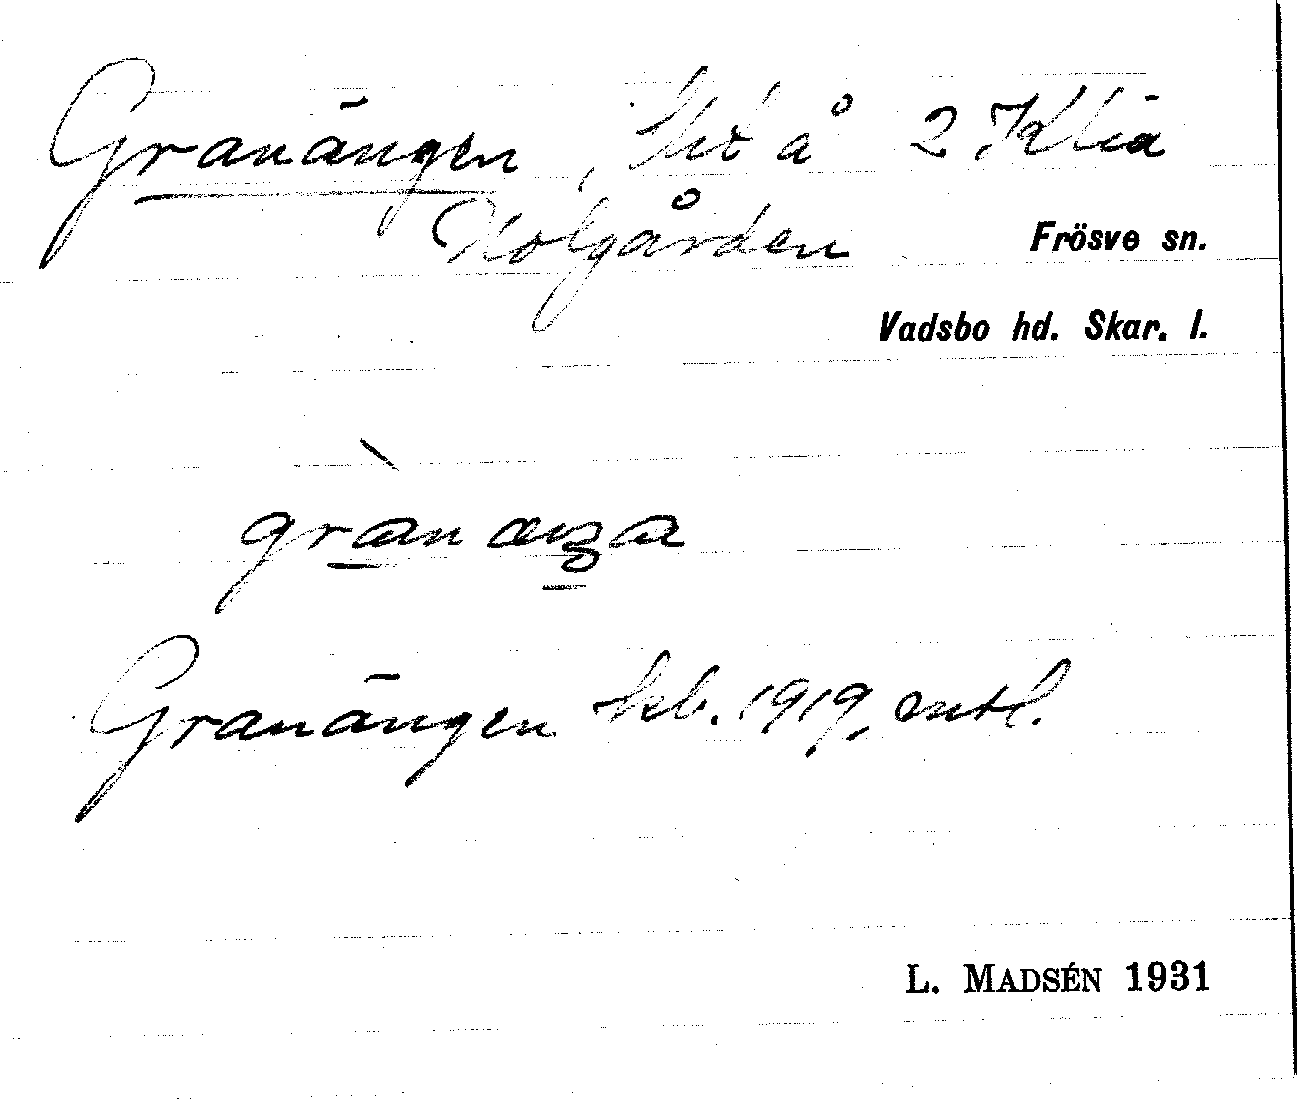 Granängen, lht å 2 Klia
Kolgården Frösve sn.
Vadsbo hd. Skar. l.
grànæŋa
Granängen kb. 1919, entl.
L. MADSÉN 1931